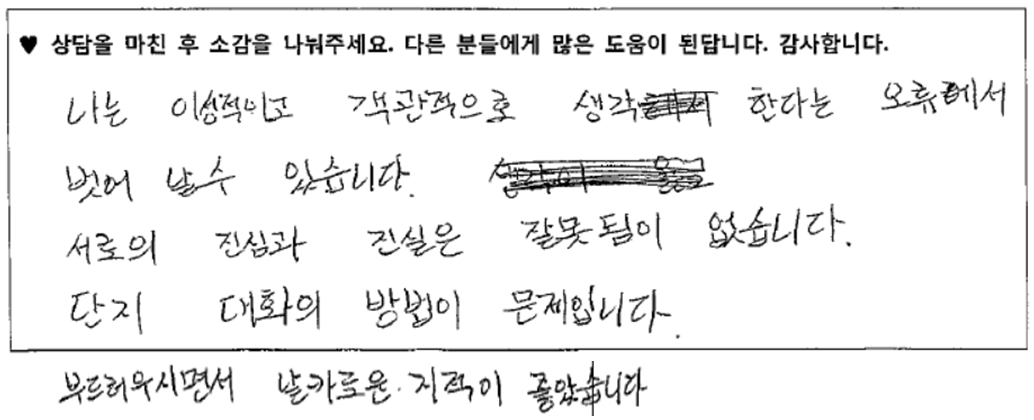 ♥ 상담을 마친 후 소감을 나눠주세요. 다른 분들에게 많은 도움이 된답니다. 감사합니다.
나는 이성적이고 객관적으로 생각 한다는 오류에서
벗어 날 수 있습니다.
서로의 진심과 진실은 잘못됨이 없습니다.
단지 대화의 방법이 문제입니다.
부드러우시면서 날카로운 지적이 좋았습니다